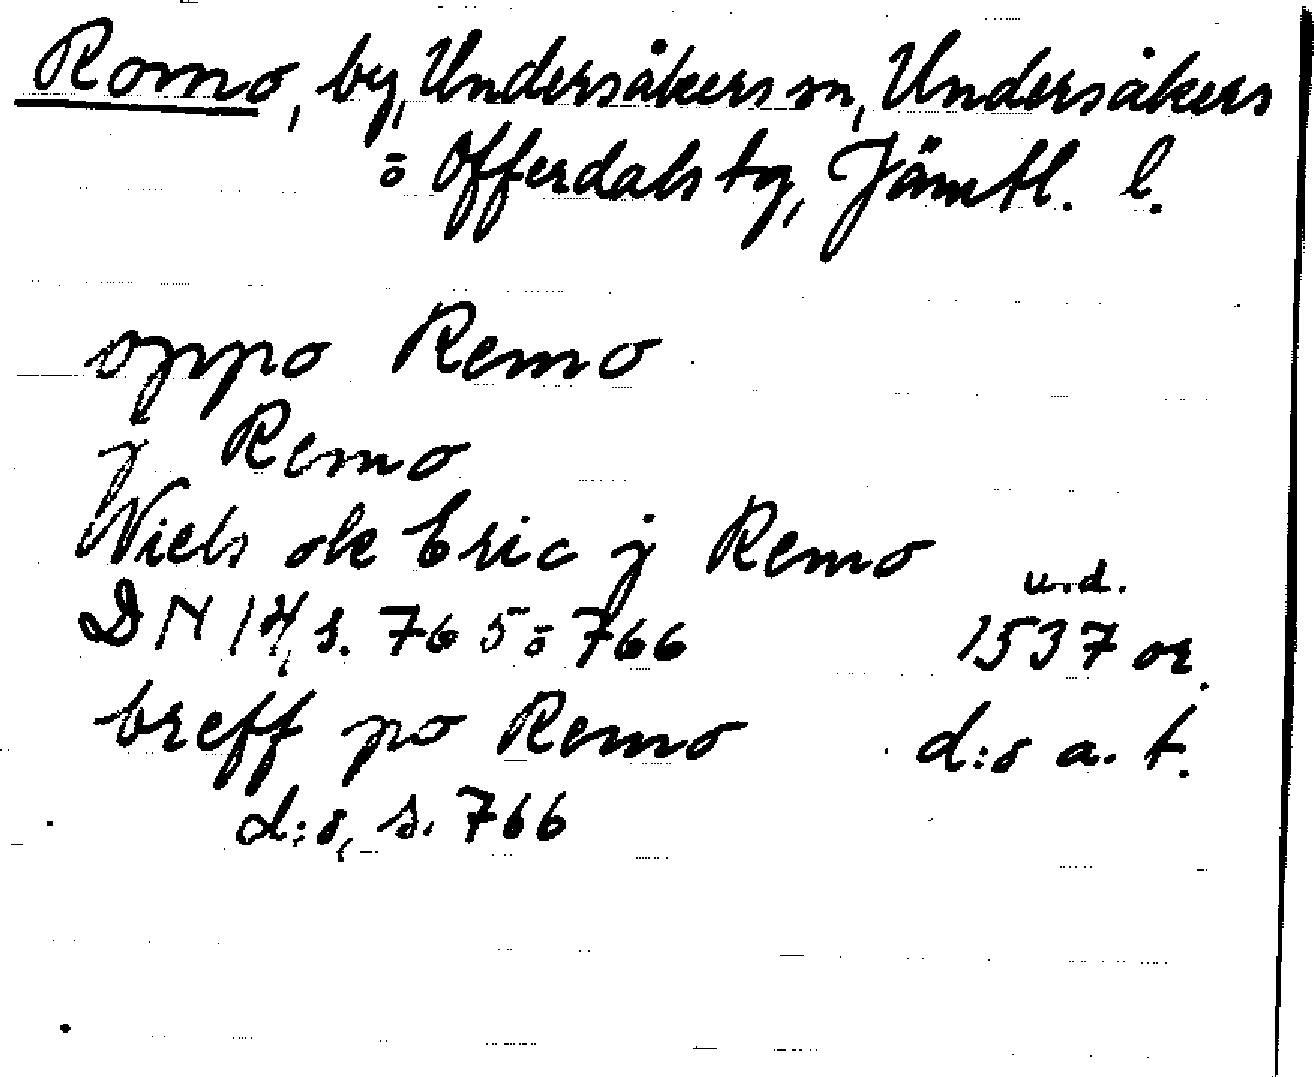 Romo, by, Undersåkers sn, Undersåkers
o Offerdals tg, Jämtl. l.
oppo Remo
j Remo
Niels ok Eric j Remo u.d.
DN 14, s. 765 o 766 1537 or.
breff po Remo d:o a. t.
d:o, s. 766